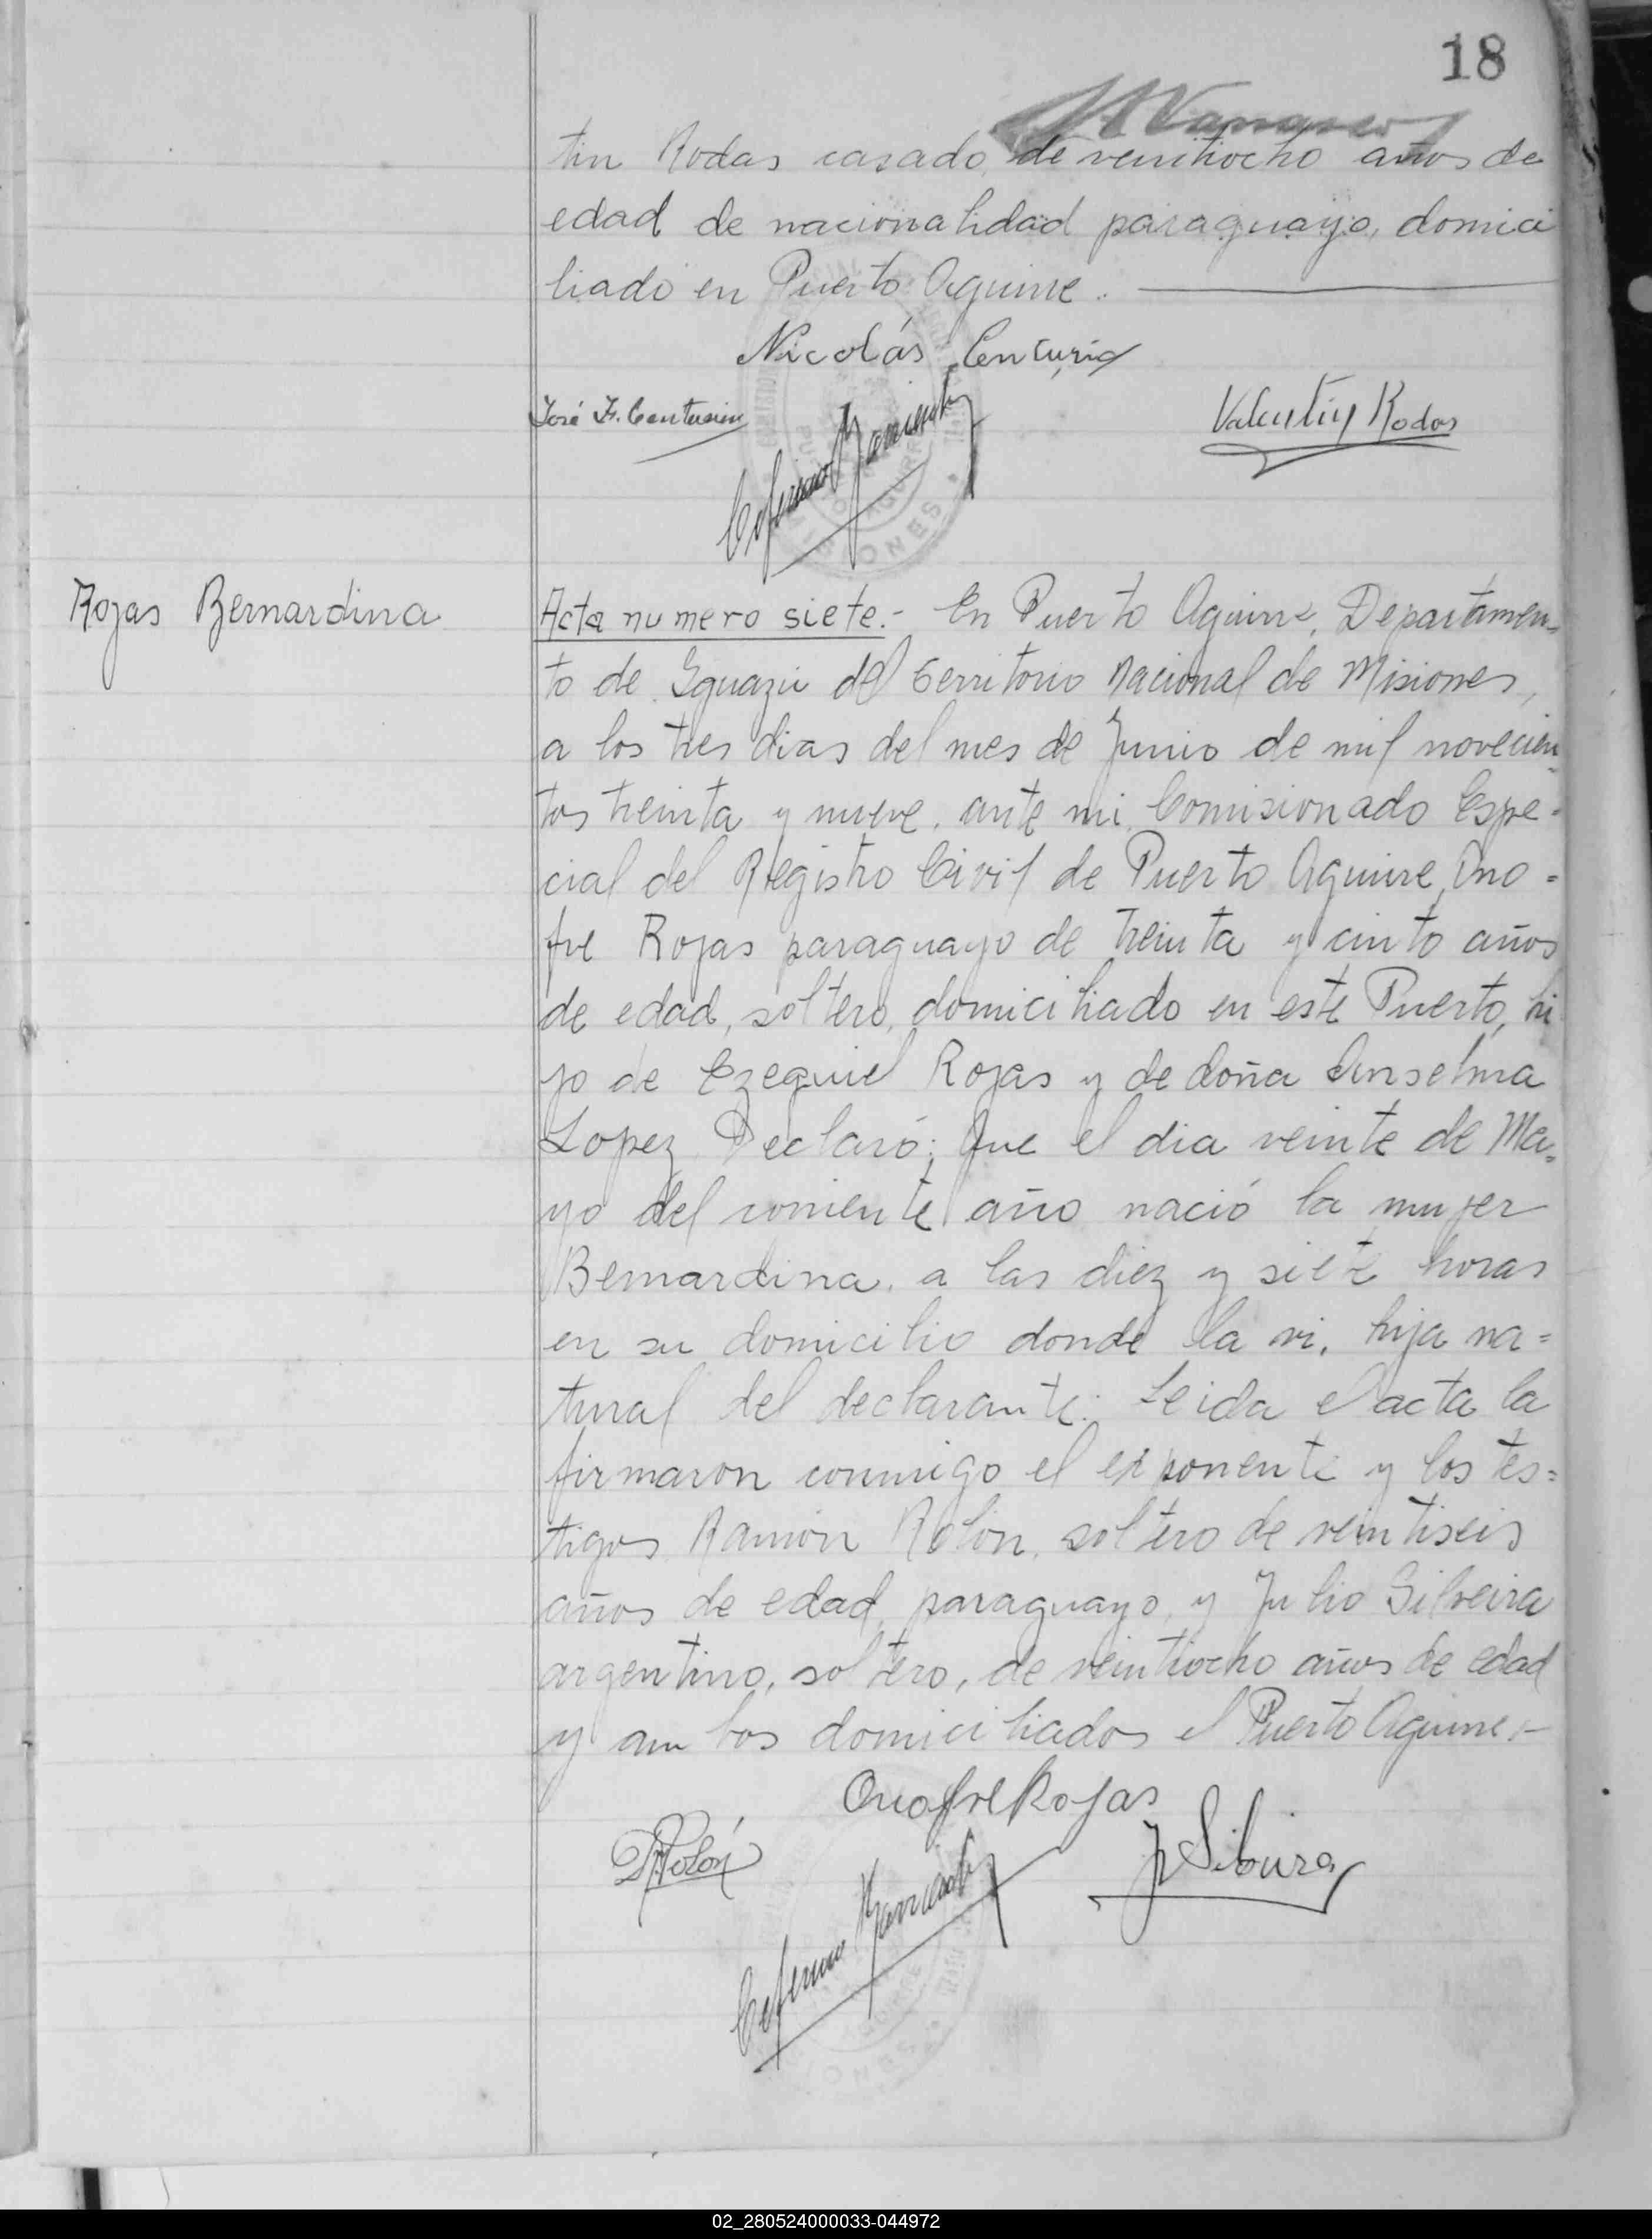 18
tin Rodas casado, de veintiocho años de
edad de nacionalidad paraguayo, domici
liado en Puerto Aguirre.
Nicolás Centurió
José F. Centurión
Valentin Rodas
Rojas Bernardina
Acta numero siete.- En Puerto Aguirre, Departamen-
to de Iguazú del Territorio Nacional de Misiones,
a los tres dias del mes de Junio de mil novecien
tos treinta y nueve, ante mi Comisionado Espe-
cial del Registro Civil de Puerto Aguirre, Ono=
fre Rojas paraguayo de treinta y cinto años
de edad, soltero, domiciliado en este Puerto, hi
jo de Ezequiel Rojas y de doña Anselma
Lopez Declaró; Que el dia veinte de Ma=
yo del corriente año nació la mujer
Bernardina. a las diez y siete horas
en su domicilio donde la vi, hija na=
tural del declarante. Leida el acta la
firmaron conmigo el exponente y los tes=
tigos Ramón Rolón, soltero de veintiseis
años de edad, paraguayo, y Julio Silveira
argentino, soltero, de veintiocho años de edad
y ambos domiciliados el Puerto Aguirre.-
Onofre Rojas
R Rolón
Ceferino
02_280524000033-044972